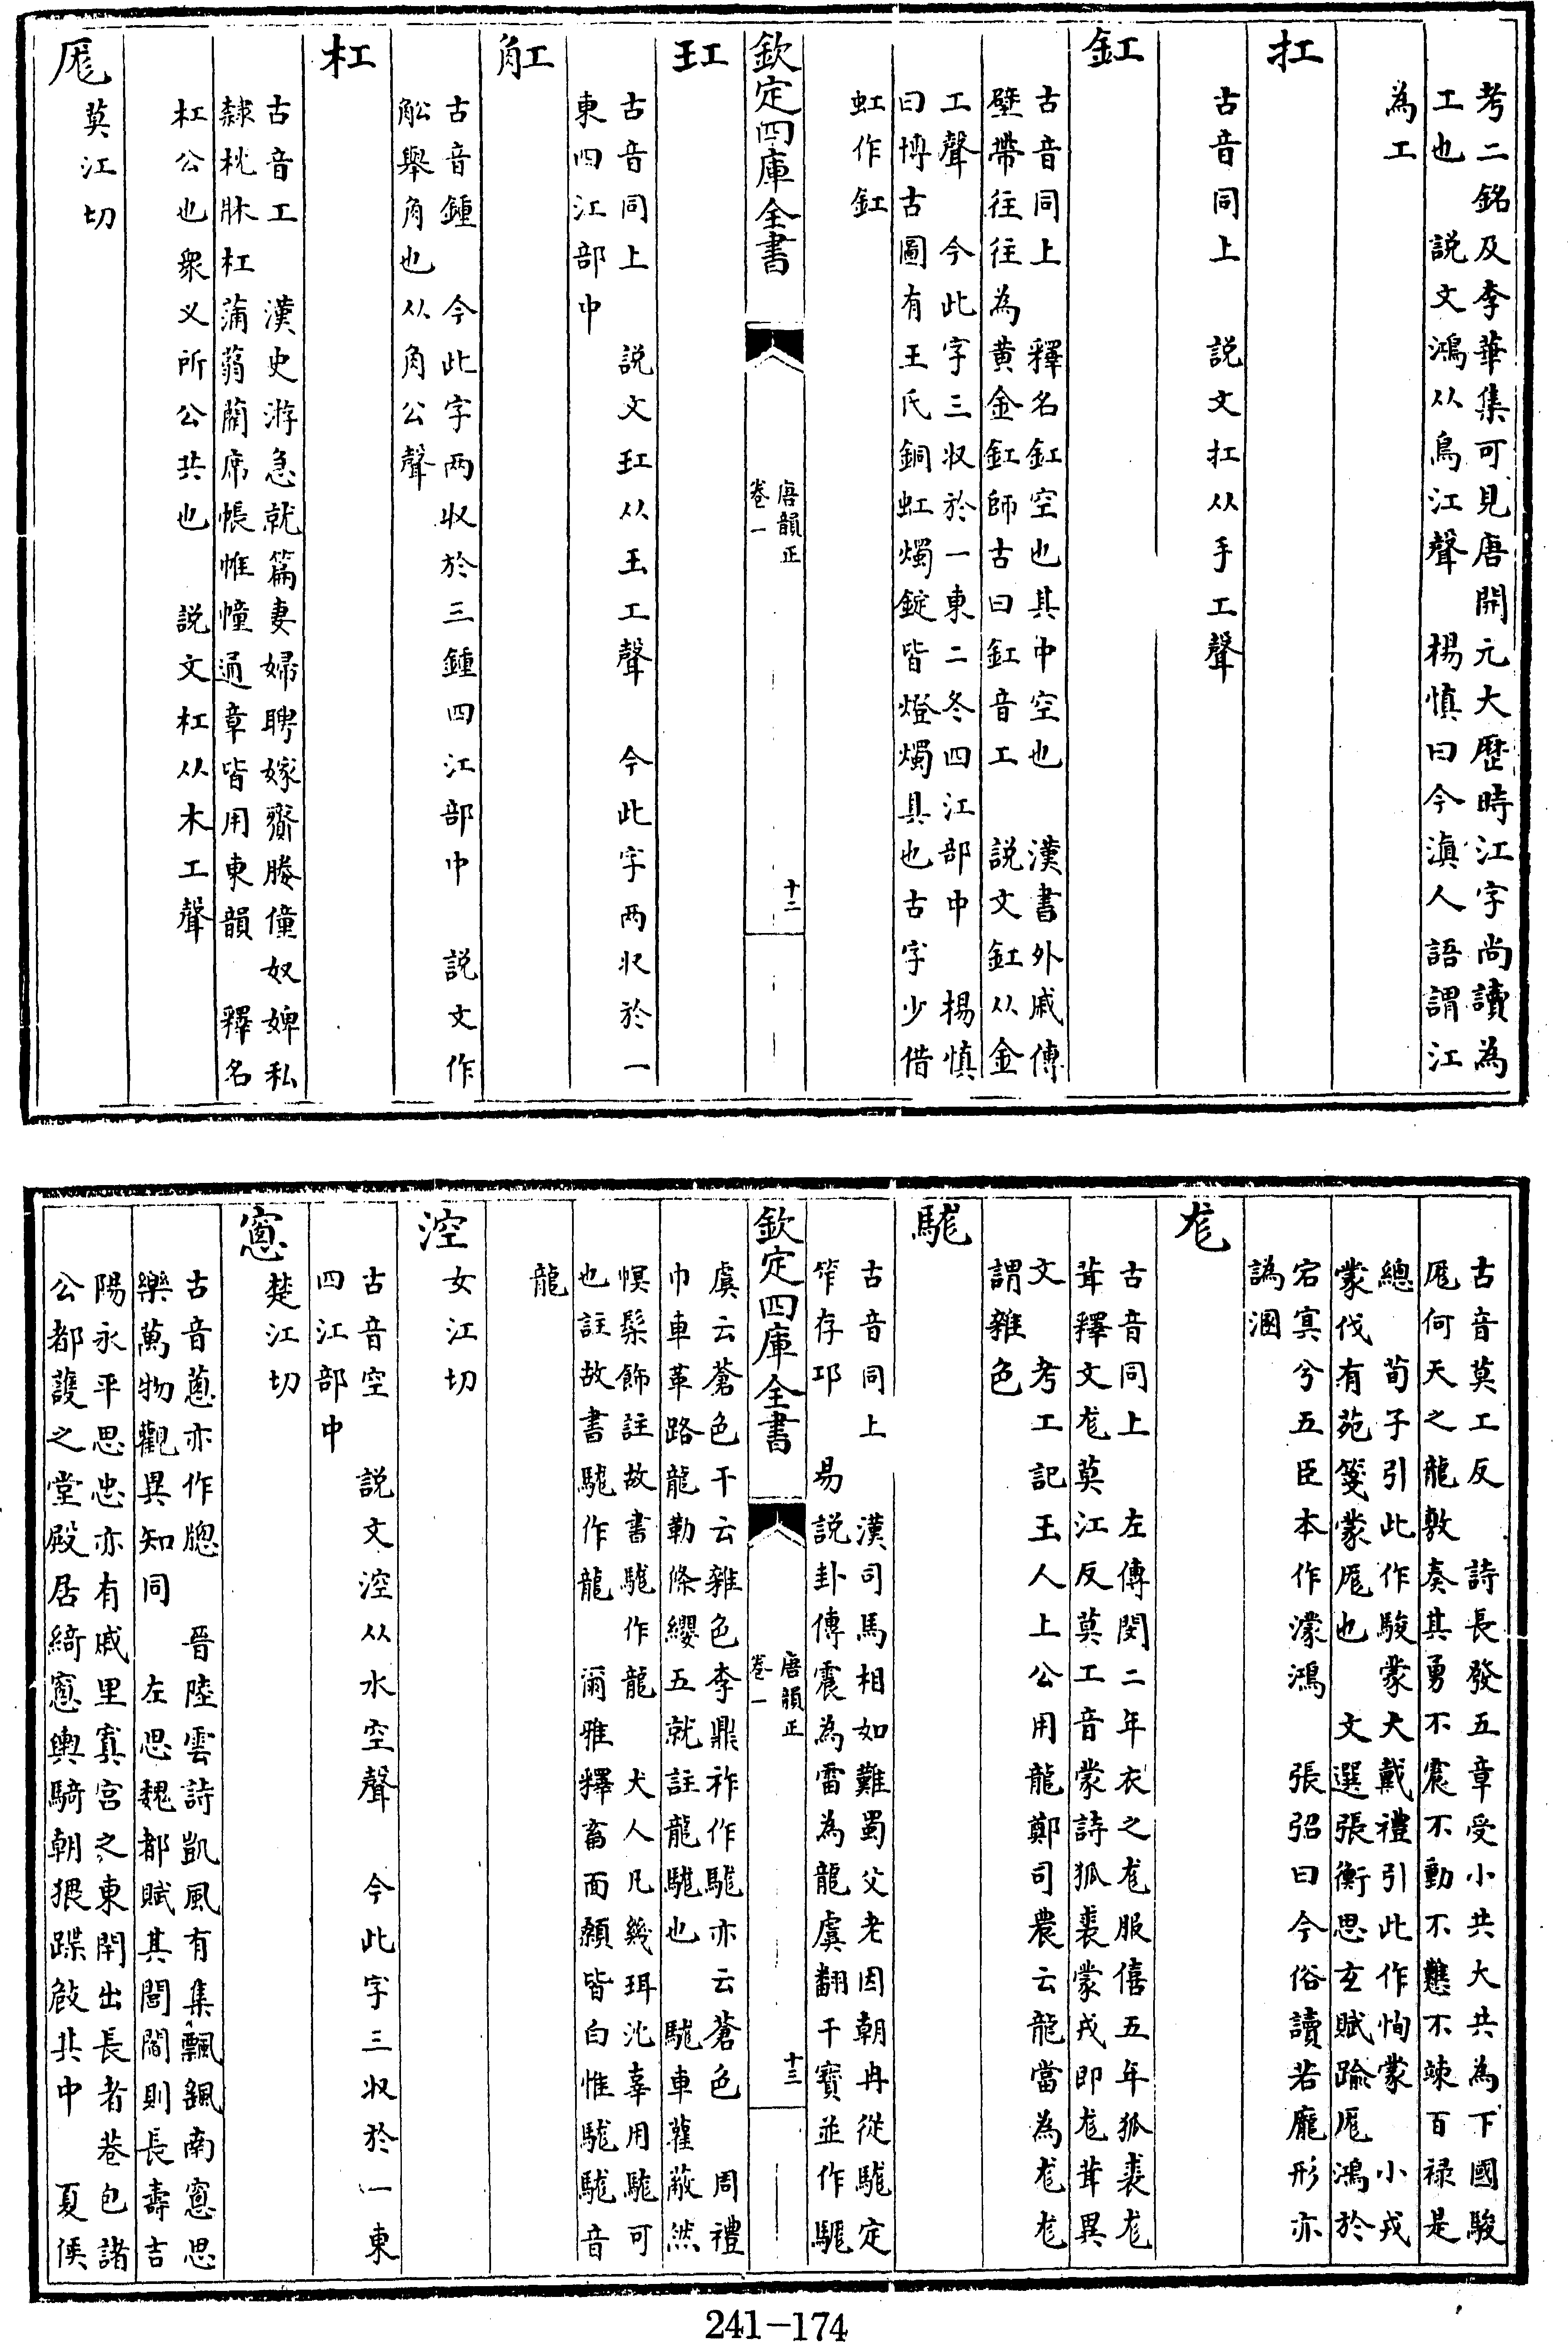 考二銘及李華集可見唐開元大歴時江字尚讀為
工也　説文鴻从鳥江聲　楊慎曰今滇人語謂江
為工
扛
古音同上　説文扛从手工聲
釭
古音同上　釋名釭空也其中空也　漢書外戚傳
壁帶往往為黄金釭師古曰釭音工　説文釭从金
工聲　今此字三収於一東二冬四江部中　楊慎
曰博古圖有王氏銅虹燭錠皆燈燭具也古字少借
虹作釭
欽定四庫全書
唐韻正
卷一
十二
玒
古音同上　説文玒从玉工聲　今此字两収於一
東四江部中
䚗
古音鍾　今此字两収於三鍾四江部中　説文作
舩舉角也从角公聲
杠
古音工　漢史游急就篇妻婦聘嫁齎媵僮奴婢私
隸枕牀杠蒲蒻藺席帳帷幢通章皆用東韻　釋名
杠公也衆义所公共也　説文杠从木工聲
厖
莫江切
古音莫工反　詩長發五章受小共大共為下國駿
厖何天之龍敷奏其勇不震不動不戁不竦百禄是
總　荀子引此作駿蒙大戴禮引此作恂蒙　小戎
蒙伐有苑箋蒙厖也　文選張衡思玄賦踰厖鴻於
宕冥兮五臣本作濛鴻　張弨曰今俗讀若龐形亦
譌溷
尨
古音同上　左傳閔二年衣之尨服僖五年狐裘尨
茸釋文尨莫江反莫工音蒙詩狐裘蒙戎即尨茸異
文　考工記玉人上公用龍鄭司農云龍當為尨尨
謂雜色
駹
古音同上　漢司馬相如難蜀父老因朝冉從駹定
筰存邛　易説卦傳震為雷為龍虞翻干寶並作駹
欽定四庫全書
唐韻正
卷一
十三
虞云蒼色干云雜色李鼎祚作駹亦云蒼色　周禮
巾車革路龍勒條纓五就註龍駹也　駹車雚蔽然
幎髹飾註故書駹作龍　犬人凡幾珥沈辜用駹可
也註故書駹作龍　爾雅釋畜面顙皆白惟駹駹音
龍
涳
女江切
古音空　説文涳从水空聲　今此字三収於一東
四江部中
窻
楚江切
古音蔥亦作牕　晉陸雲詩凱風有集飄飖南窻思
樂萬物觀異知同　左思魏都賦其閭閻則長壽吉
陽永平思忠亦有戚里寘宫之東閈出長者巷包諸
公都護之堂殿居綺窻輿騎朝猥蹀㪃其中　夏侯
241-174